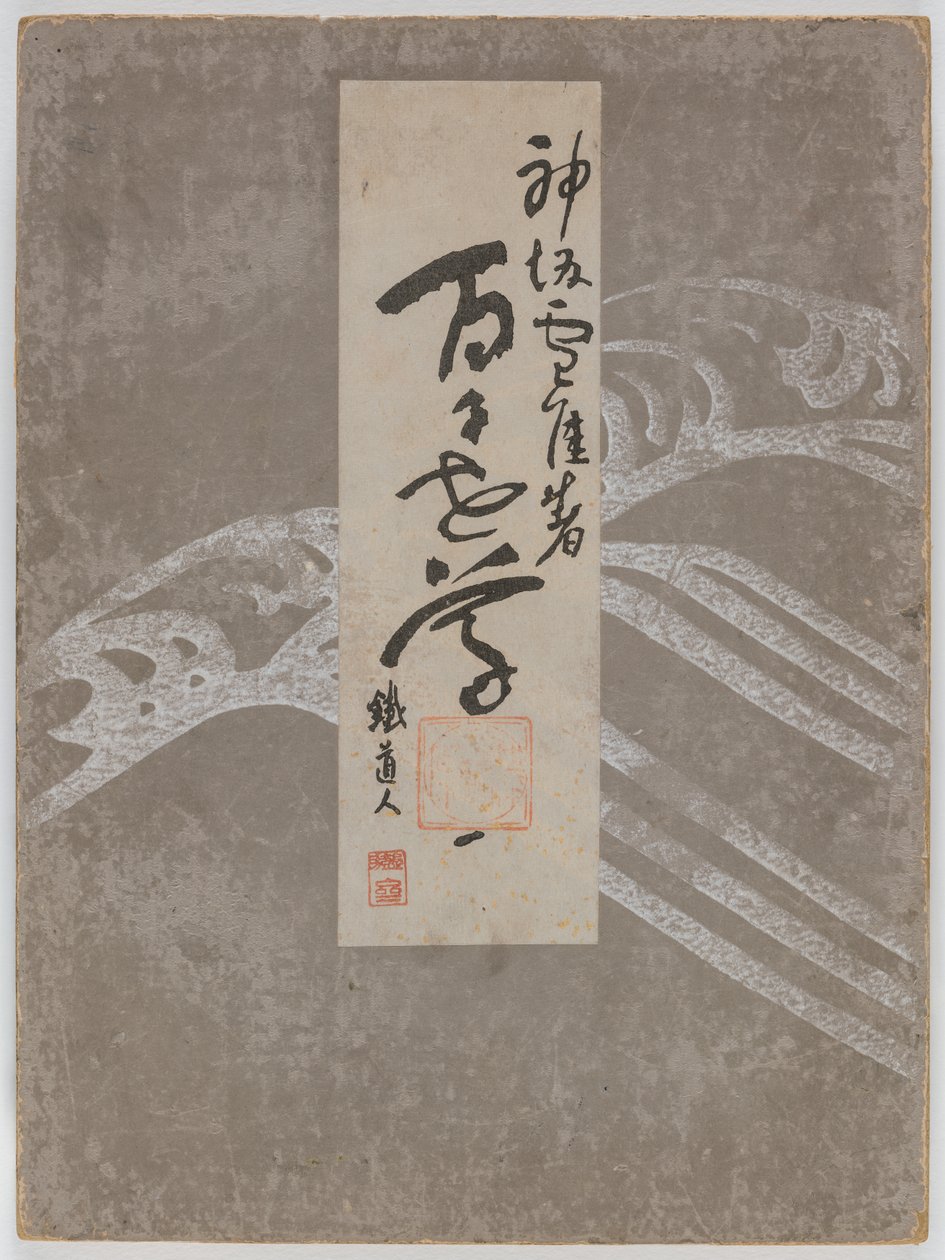 神坂雪佳著
百々世草
鐵道人
一